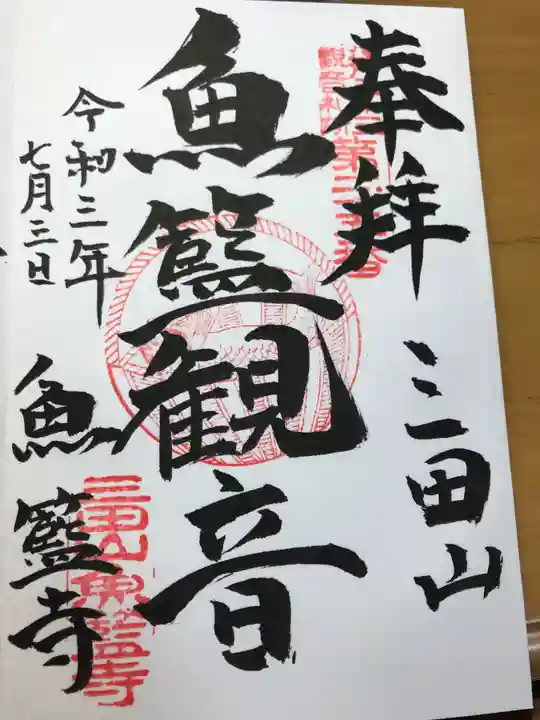 奉拝
三田山
魚籃観音
令和三年
七月三日
魚籃寺
三田山魚籃寺